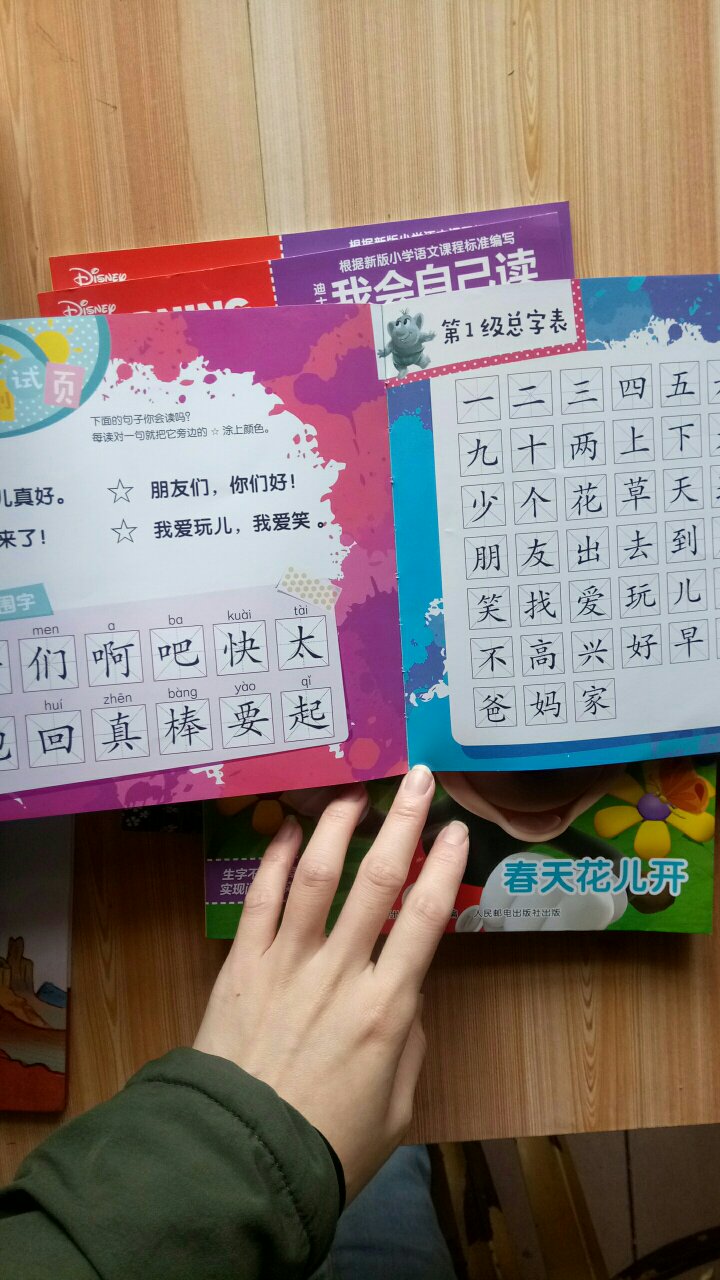 根据新版小学语文课
DISNEY
根据新版小学语文课程标准编写
DISNEY
我会自己读
试
页
下面的句子你会读吗？
每读对一句就把它旁边的☆涂上颜色。
儿真好。
☆ 朋友们，你们好！
来了！
☆ 我爱玩儿，我爱笑。
围字
men a ba kuài tài
们 啊 吧 快 太
huí zhēn bàng yào qǐ
回 真 棒 要 起
第1级总字表
一 二 三 四 五
九 十 两 上 下
少 个 花 草 天
朋 友 出 去 到
笑 找 爱 玩 儿
不 高 兴 好 早
爸 妈 家
春天花儿开
生字不
实现
人民邮电出版社出版